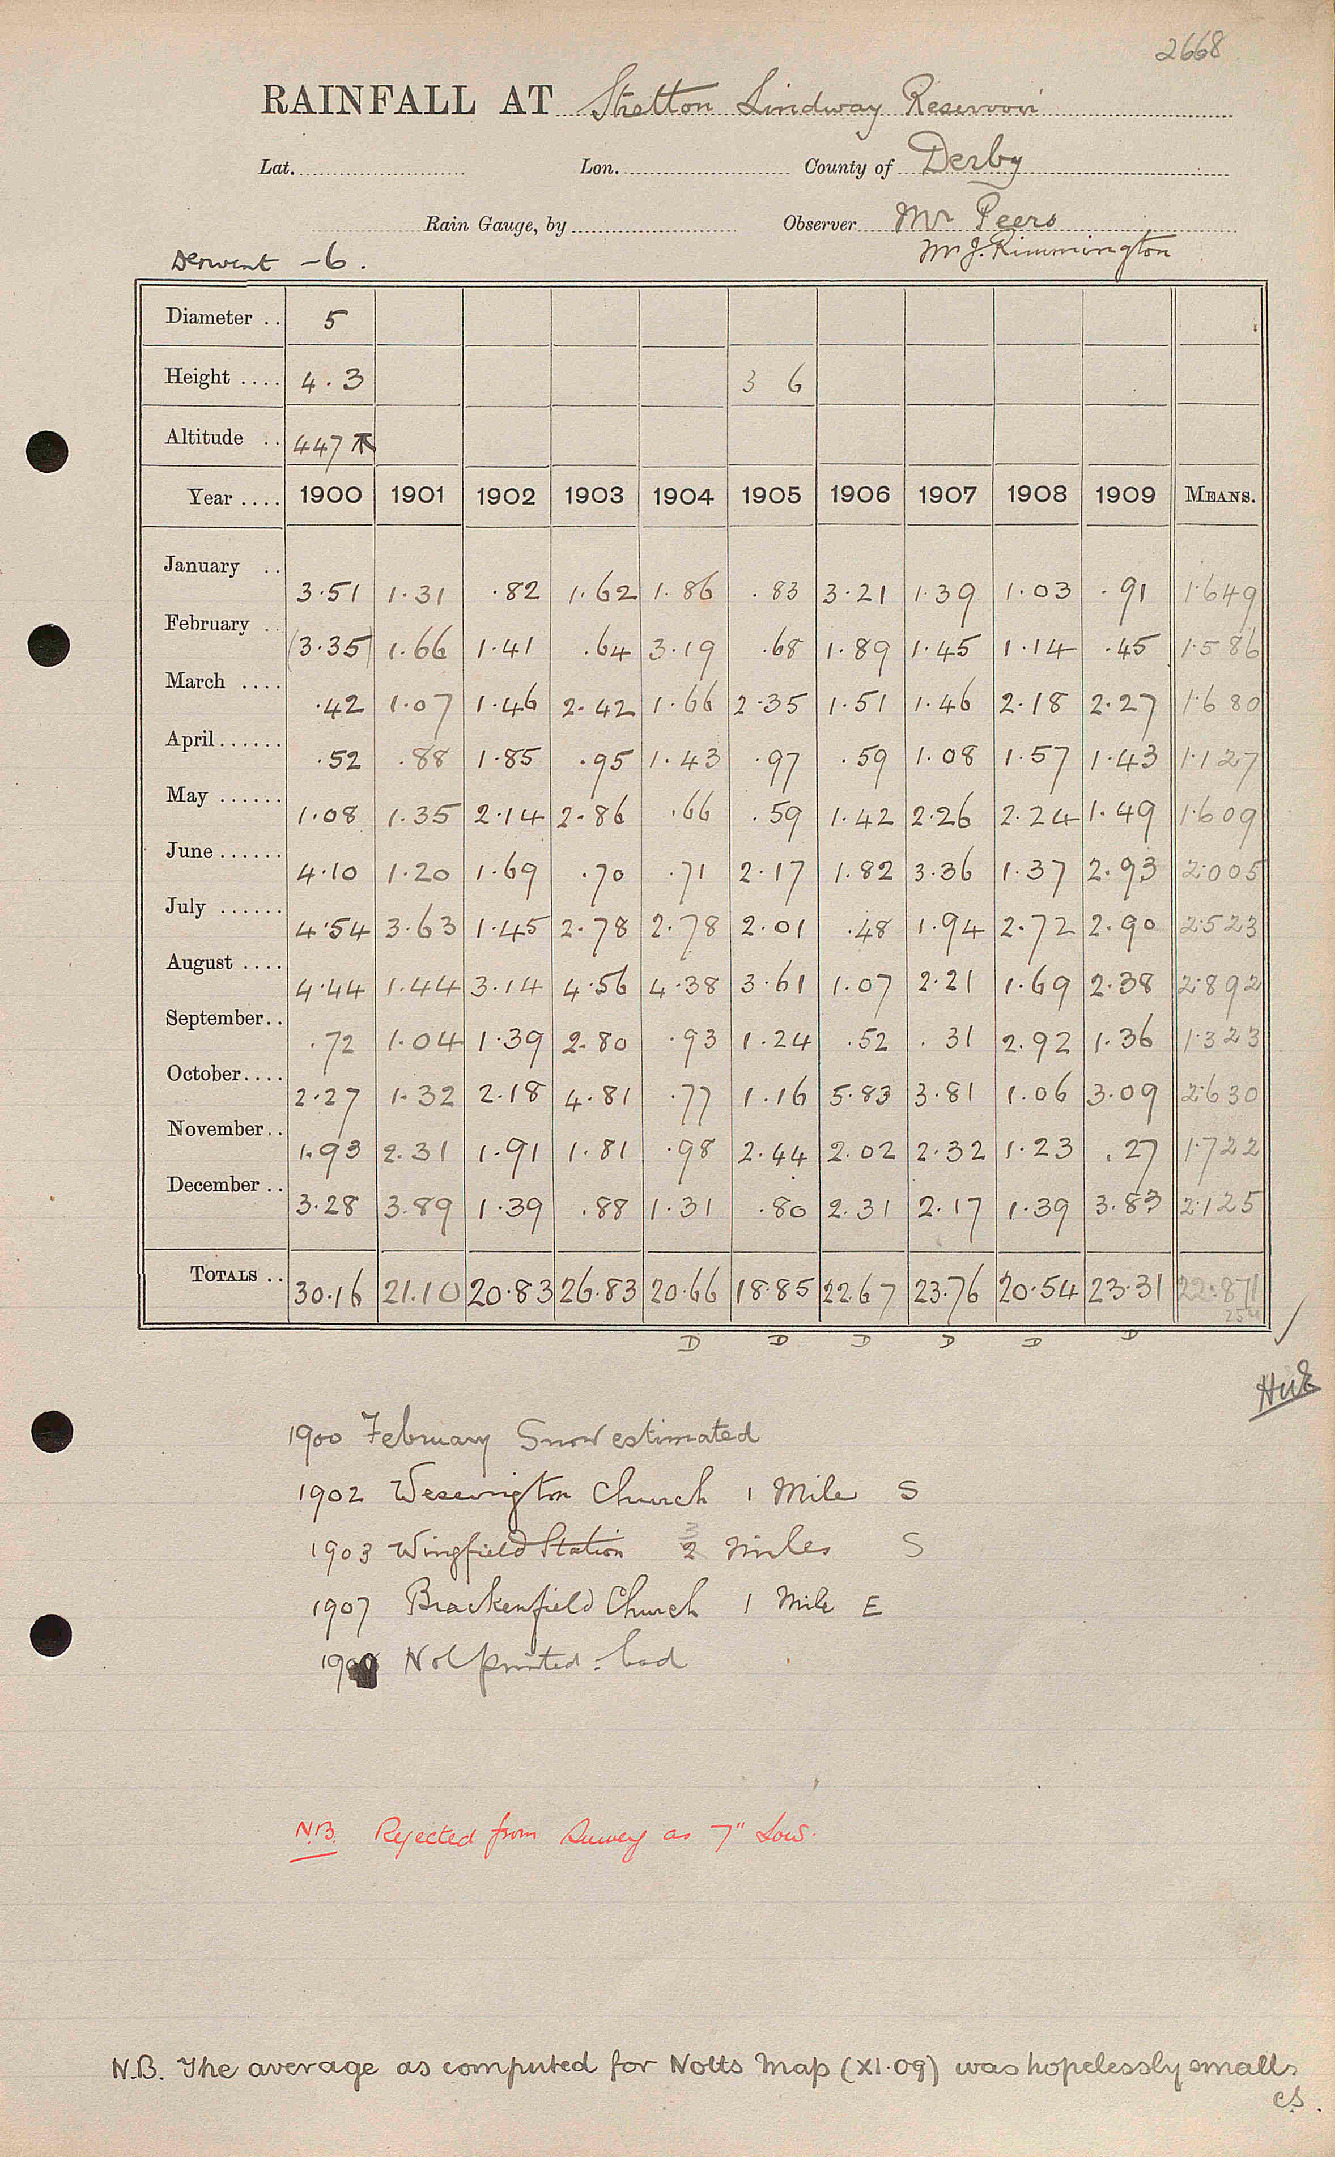 2668
RAINFALL AT Stretton Lindway Reservoir
Lat. Lon. County of Derby
Rain Gauge, by Observer Mr Peers
Derwent - 6. Mr J. Rimmington
Diameter .. 5
Height .... 4.3 3 6
Altitude .. 447
Year .... 1900 1901 1902 1903 1904 1905 1906 1907 1908 1909 MEANS.
January .. 3.51 1.31 .82 1.62 1.86 .83 3.21 1.39 1.03 .91 1.649
February .. (3.35) 1.66 1.41 .64 3.19 .68 1.89 1.45 1.14 .45 1.586
March .... .42 1.07 1.46 2.42 1.66 2.35 1.51 1.46 2.18 2.27 1.680
April...... .52 .88 1.85 .95 1.43 .97 .59 1.08 1.57 1.43 1.127
May ...... 1.08 1.35 2.14 2.86 .66 .59 1.42 2.26 2.24 1.49 1.609
June ...... 4.10 1.20 1.69 .70 .71 2.17 1.82 3.36 1.37 2.93 2.005
July ...... 4.54 3.63 1.45 2.78 2.78 2.01 .48 1.94 2.72 2.90 2.523
August .... 4.44 1.44 3.14 4.56 4.38 3.61 1.07 2.21 1.69 2.38 2.892
September.. .72 1.04 1.39 2.80 .93 1.24 .52 .31 2.92 1.36 1.323
October.... 2.27 1.32 2.18 4.81 .77 1.16 5.83 3.81 1.06 3.09 2.630
November.. 1.93 2.31 1.91 1.81 .98 2.44 2.02 2.32 1.23 .27 1.722
December .. 3.28 3.89 1.39 .88 1.31 .80 2.31 2.17 1.39 3.83 2.125
TOTALS .. 30.16 21.10 20.83 26.83 20.66 18.85 22.67 23.76 20.54 23.31 22.871
D D D D D D
1900 February Snow estimated
1902 Wessington Church 1 Mile S
1903 Wingfield Station 2 miles S
1907 Brackenfield Church 1 Mile E
Not printed - bad
N.B. Rejected from Survey as 7" Low.
N.B. The average as computed for Notts Map (XI.09) was hopelessly small.